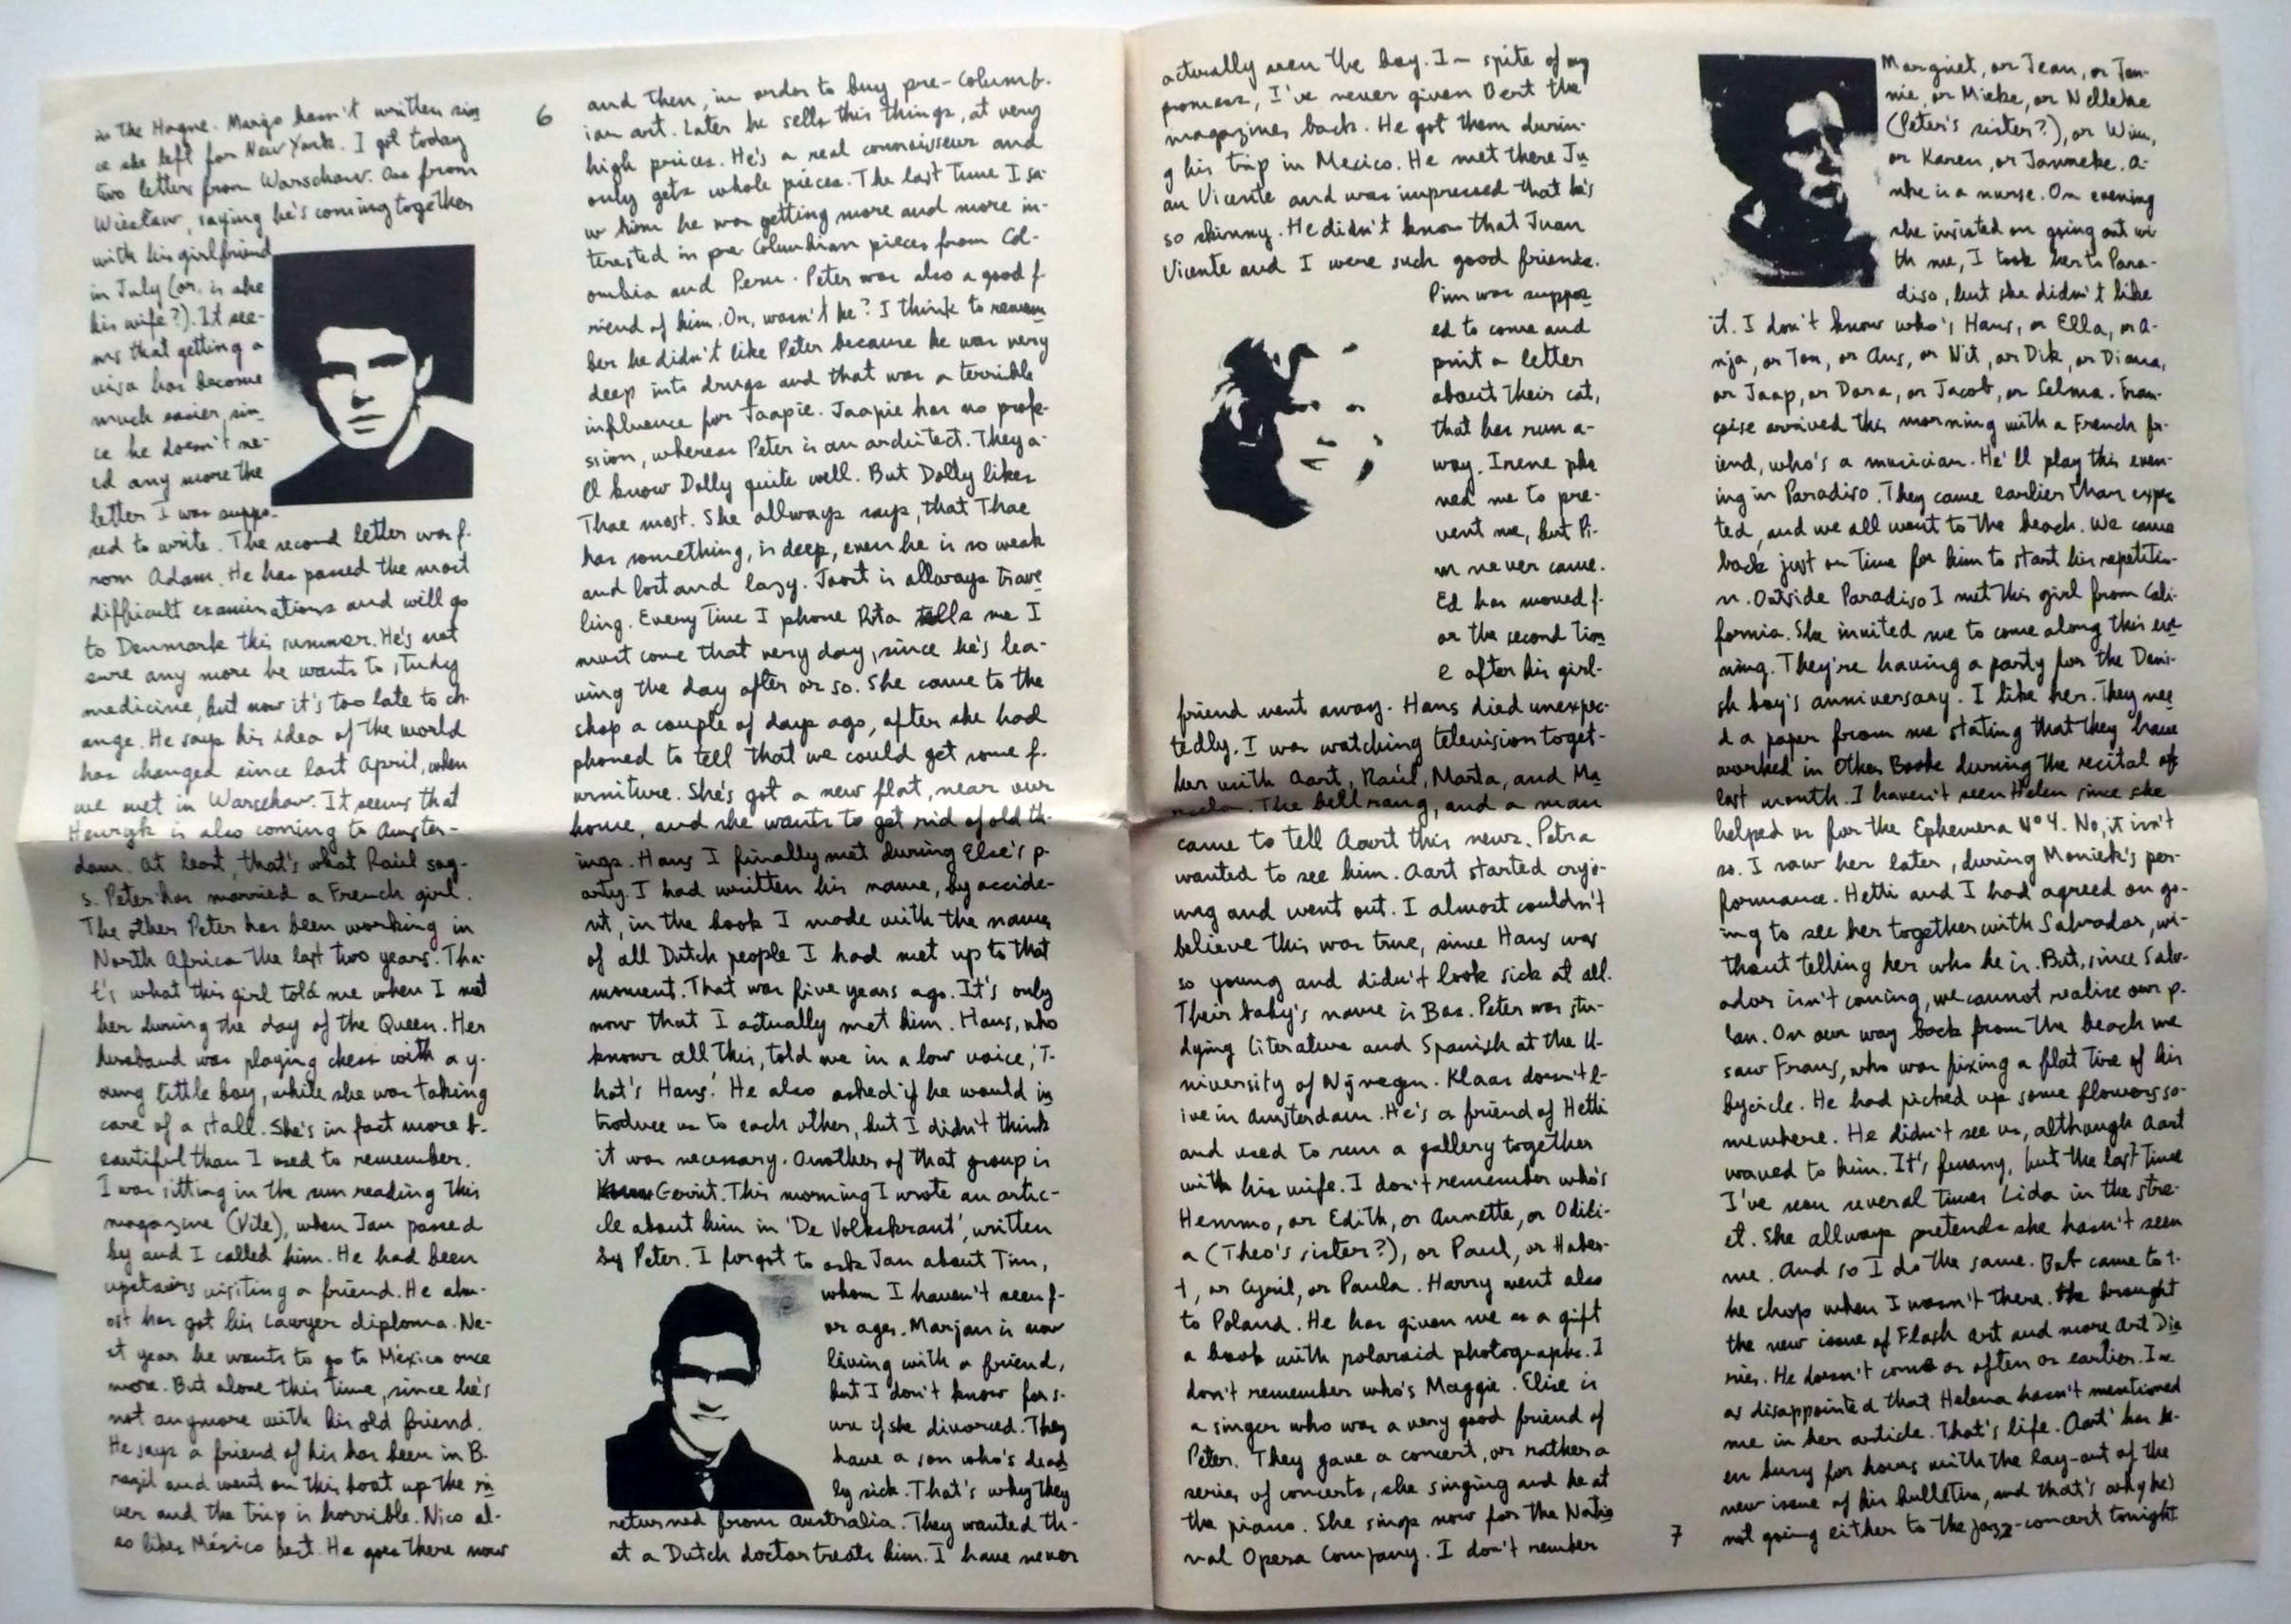 in The Hague. Margo hasn't written sin
ce she left for New York. I got today
two letters from Warschow. One from
Wiesław, saying he's coming together
with his girlfriend
in July (or is she
his wife?). It see-
ms that getting a
visa has become
much easier, sin
ce he doesn't ne-
ed any more the
letter I was suppo-
sed to write. The second letter was f-
rom Adam. He has passed the most
difficult examinations and will go
to Denmark this summer. He's not
sure any more he wants to study
medicine, but now it's too late to ch-
ange. He says his idea of the world
has changed since last April, when
we met in Warschow. It seems that
Henryk is also coming to Amster-
dam. At least, that's what Raúl say-
s. Peter has married a French girl.
The other Peter has been working in
North Africa the last two years. Tha-
t's what this girl told me when I met
her during the day of the Queen. Her
husband was playing chess with a y-
oung little boy, while she was taking
care of a stall. She's in fact more b-
eautiful than I used to remember.
I was sitting in the sun reading this
magazine (Vile), when Jan passed
by and I called him. He had been
upstairs visiting a friend. He alm-
ost has got his lawyer diploma. Ne-
xt year he wants to go to México once
more. But alone this time, since he's
not anymore with his old friend.
He says a friend of his has been in B-
razil and went on this boat up the ri
ver and the trip is horrible. Nico al-
so likes México best. He goes there now
6
and then, in order to buy pre-Columb-
ian art. Later he sells this things, at very
high prices. He's a real connaisseur and
only gets whole pieces. The last time I sa-
w him he was getting more and more in-
terested in pre Columbian pieces from Col-
ombia and Peru. Peter was also a good f-
riend of him. Or, wasn't he? I think to remem
ber he didn't like Peter because he was very
deep into drugs and that was a terrible
influence for Jaapie. Jaapie has no profe-
ssion, whereas Peter is an architect. They a-
ll know Dolly quite well. But Dolly likes
Thae most. She allways says, that Thae
has something, is deep, even he is so weak
and lost and lazy. Joost is allways trave
ling. Every time I phone Rita tells me I
must come that very day, since he's lea-
ving the day after or so. She came to the
shop a couple of days ago, after she had
phoned to tell that we could get some f-
urniture. She's got a new flat, near our
house, and she wants to get rid of old th-
ings. Hans I finally met during Else's p-
arty. I had written his name, by accide-
nt, in the book I made with the names
of all Dutch people I had met up to that
moment. That was five years ago. It's only
now that I actually met him. Hans, who
knows all this, told me in a low voice, 'T-
hat's Hans'. He also asked if he would in
troduce us to each other, but I didn't think
it was necessary. Another of that group is
Gerrit. This morning I wrote an artic-
le about him in 'De Volkskrant', written
by Peter. I forgot to ask Jan about Tim,
whom I haven't seen f-
or ages. Marjan is now
living with a friend,
but I don't know for s-
ure if she divorced. They
have a son who's dead
ly sick. That's why they
returned from Australia. They wanted th-
at a Dutch doctor treats him. I have never
actually seen the boy. In spite of my
promess, I've never given Bert the
magazines back. He got them durin-
g his trip in Mexico. He met there Ju
an Vicente and was impressed that he's
so skinny. He didn't know that Juan
Vicente and I were such good friends.
Pim was suppos
ed to come and
print a letter
about their cat,
that has run a-
way. Irene pho
ned me to pre-
vent me, but Pi-
m never came.
Ed has moved f-
or the second tim
e after his girl-
friend went away. Hans died unexpec-
tedly. I was watching television toget-
her with Aart, Raúl, Marta, and Ma
The bell rang, and a man
came to tell Aart this news. Petra
wanted to see him. Aart started cryi-
nng and went out. I almost couldn't
believe this was true, since Hans was
so young and didn't look sick at all.
Their baby's name is Bas. Peter was stu-
dying literature and Spanish at the U-
niversity of Nijmegen. Klaas doesn't l-
ive in Amsterdam. He's a friend of Hetti
and used to run a gallery together
with his wife. I don't remember who's
Hemmo, or Edith, or Annette, or Odili-
a (Theo's sister?), or Paul, or Huber-
t, or Cyril, or Paula. Harry went also
to Poland. He has given me as a gift
a book with polaroid photographs. I
don't remember who's Maggie. Elise is
a singer who was a very good friend of
Peter. They gave a concert, or rather a
series of concerts, she singing and he at
the piano. She sings now for the Natio
nal Opera Company. I don't rember
Margriet, or Jean, or Jan-
nie, or Mieke, or Nelleke
(Peter's sister?), or Wim,
or Karen, or Janneke. A-
nke is a nurse. On evening
she insisted on going out wi
th me, I took her to Para-
diso, but she didn't like
it. I don't know who's Hans, or Ella, or A-
nja, or Ton, or Ans, or Nit, or Dik, or Diana,
or Jaap, or Dora, or Jacob, or Selma. Fran-
çoise arrived this morning with a French fr-
iend, who's a musician. He'll play this even-
ing in Paradiso. They came earlier than expec
ted, and we all went to the beach. We came
back just on time for him to start his repetitio-
n. Outside Paradiso I met this girl from Cali-
fornia. She invited me to come along this eve
ning. They're having a party for the Dani-
sh boy's anniversary. I like her. They nee
d a paper from me stating that they have
worked in Other Books during the recital of
last month. I haven't seen Helen since she
helped us for the Ephemera Nº 4. No, it isn't
so. I saw her later, during Moniek's per-
formance. Hetti and I had agreed on go-
ing to see her together with Salvador, wi-
thout telling her who he is. But, since Salv-
ador isn't coming, we cannot realise our p-
lan. On our way back from the beach we
saw Frans, who was fixing a flat tire of his
bycicle. He had picked up some flowers so-
mewhere. He didn't see us, although Aart
waved to him. It's funny, but the last time
I've seen several times Lida in the stre-
et. She allways pretends she hasn't seen
me. And so I do the same. Bat came to t-
he shop when I wasn't there. He brought
the new issue of Flash Art and more Art Dia
ries. He doesn't come as often as earlier. I w-
as disappointed that Helena hasn't mentioned
me in her article. That's life. Aart has be-
en busy for hours with the lay-out of the
new issue of his bulletin, and that's why he's
not going either to the jazz-concert tonight
7